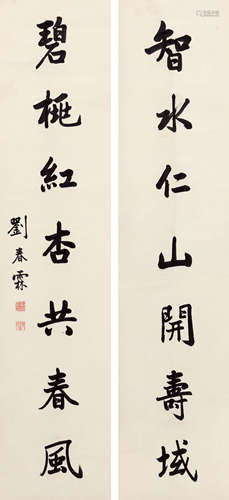 智水仁山開壽域
碧桃紅杏共春風
劉春霖